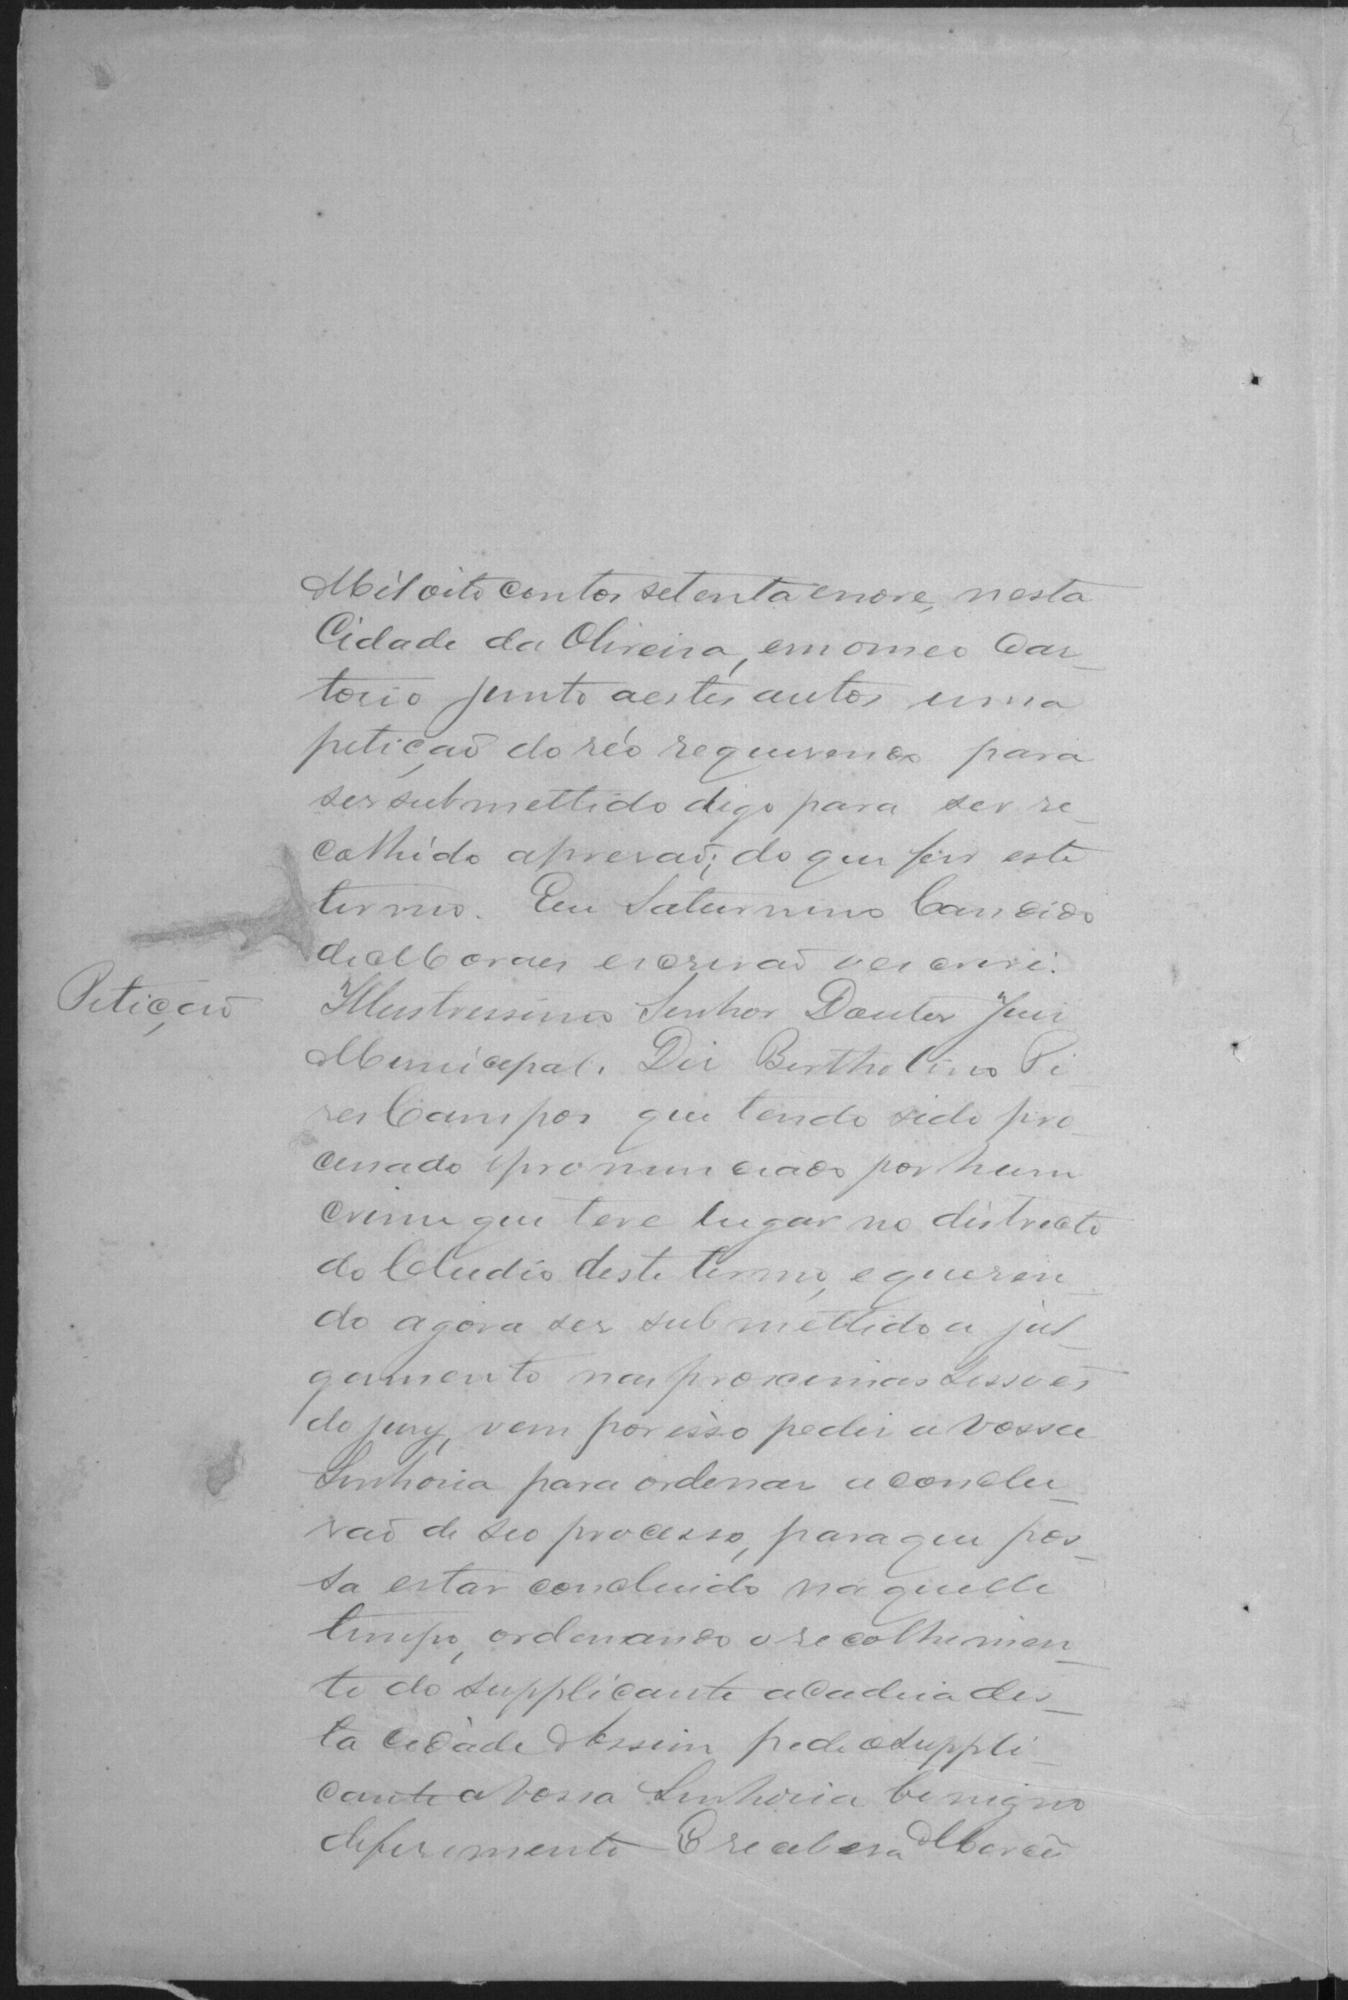 Mil oito centos setenta enove, nesta
Cidade da Oliveira, em o meo Car_
torio junto a estes autos uma
petiçaõ do réo requerendo para
ser submettido digo para ser re_
colhido aprezaõ; do que fiz este
termo. Eu Saturnino Candido
de Moraes escrivaõ o escrivi.
Petiçaõ
Illustrissimo Senhor Doutor Juiz
Municipal. Diz Bertholino Pi_
res Campos que tendo sido pro_
cessado epronunciado por hum
crime que teve lugar no districto
do Claudio deste termo, e queren_
do agora ser submettido a jul_
gamento nas proximas Sessoẽs
do jury, vem por isso pedir a Vossa
Senhoria para ordenar a conclu_
zaõ de seo processo, para que pos_
sa estar concluido naquelle
tempo, ordenando o recolhimen_
to do supplicante a Cadeia des_
ta cidade Assim pede o suppli_
cante a Vossa Senhoria benigno
diferimento E receberá Mercê